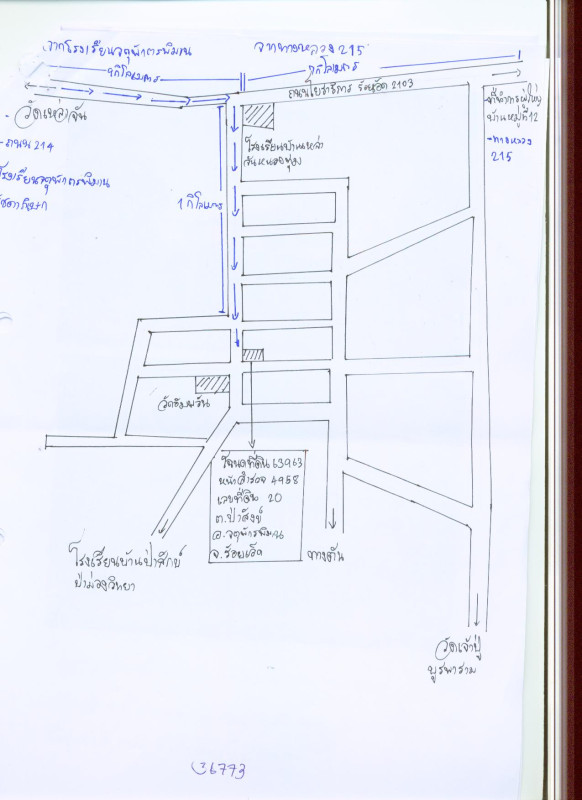 จากโรงเรียนจตุพักตรพิมาน
จากทางหลวง 215
1 กิโลเมตร
1 กิโลเมตร
ถนนโยธาธิการ ร้อยเอ็ด 2103
- วัดเหล่าจั่น
- ถนน 214
โรงเรียนจตุพักตรพิมาน
รัชดาภิเษก
บ้านหมู่ที่ 12
- ทางหลวง
215
โรงเรียนบ้านเหล่า
จั่นหนองฟุ่ม
1 กิโลเมตร
วัดอัมพวัน
โฉนดที่ดิน 63963
หน้าสำรวจ 4958
เลขที่ดิน 20
ต.ป่าสังข์
อ.จตุพักรพิมาน
จ.ร้อยเอ็ด
ทางตัน
โรงเรียนบ้านป่าสังข์
ป่าม่วงวิทยา
วัดเจ้าปู่
บูรพาราม
6773